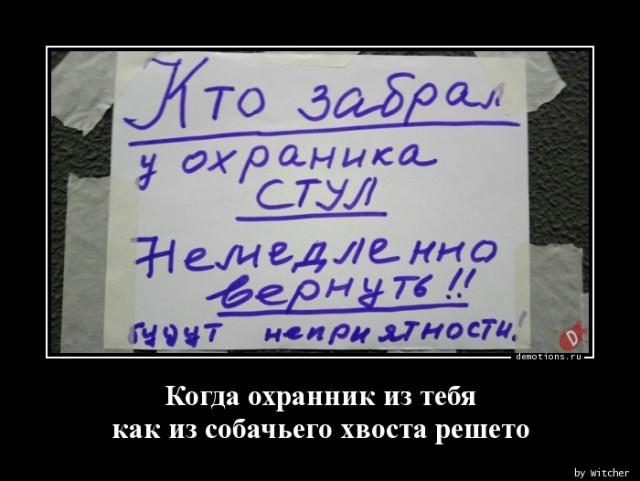 Кто забрал
у охраника
СТУЛ
Немедленно
вернуть!!
будут неприятности!
demotions.ru
Когда охранник из тебя
как из собачьего хвоста решето
by Witcher